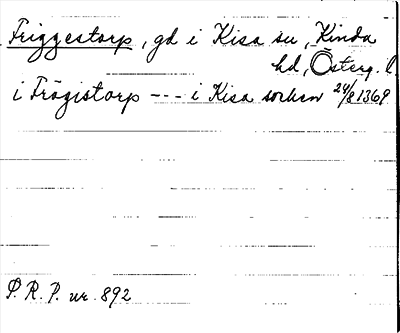 Friggestorp, gd i Kisa sn, Kinda
hd, Österg. l.
i Frögistorp --- i Kisa sorken 24/8 1369
P. R. P. nr. 892